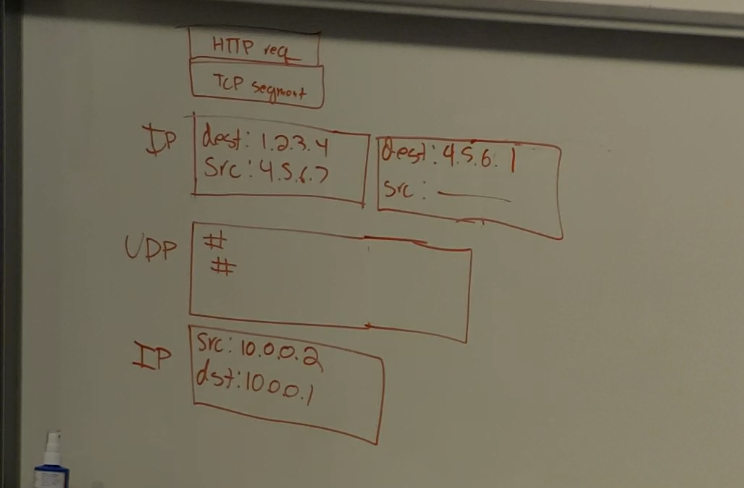 HTTP req
TCP segment
IP
dest: 1.2.3.4
Src: 4.5.6.7
dest: 4.5.6.1
src:
UDP
#
#
IP
Src: 10.0.0.2
dst: 10.0.0.1